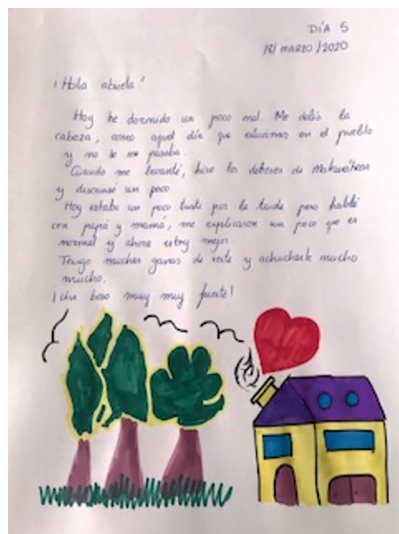 DÍA 5
18/MARZO/2020
¡Hola abuela!
Hoy he dormido un poco mal. Me dolía la
cabeza, como aquel día que estuvimos en el pueblo
y no se me pasaba.
Cuando me levanté, hice los deberes de Matemáticas
y descansé un poco
Hoy estaba un poco triste por la tarde pero hablé
con papá y mamá, me explicaron un poco que es
normal y ahora estoy mejor.
Tengo muchas ganas de verte y achucharte mucho
mucho.
¡Un beso muy muy fuerte!